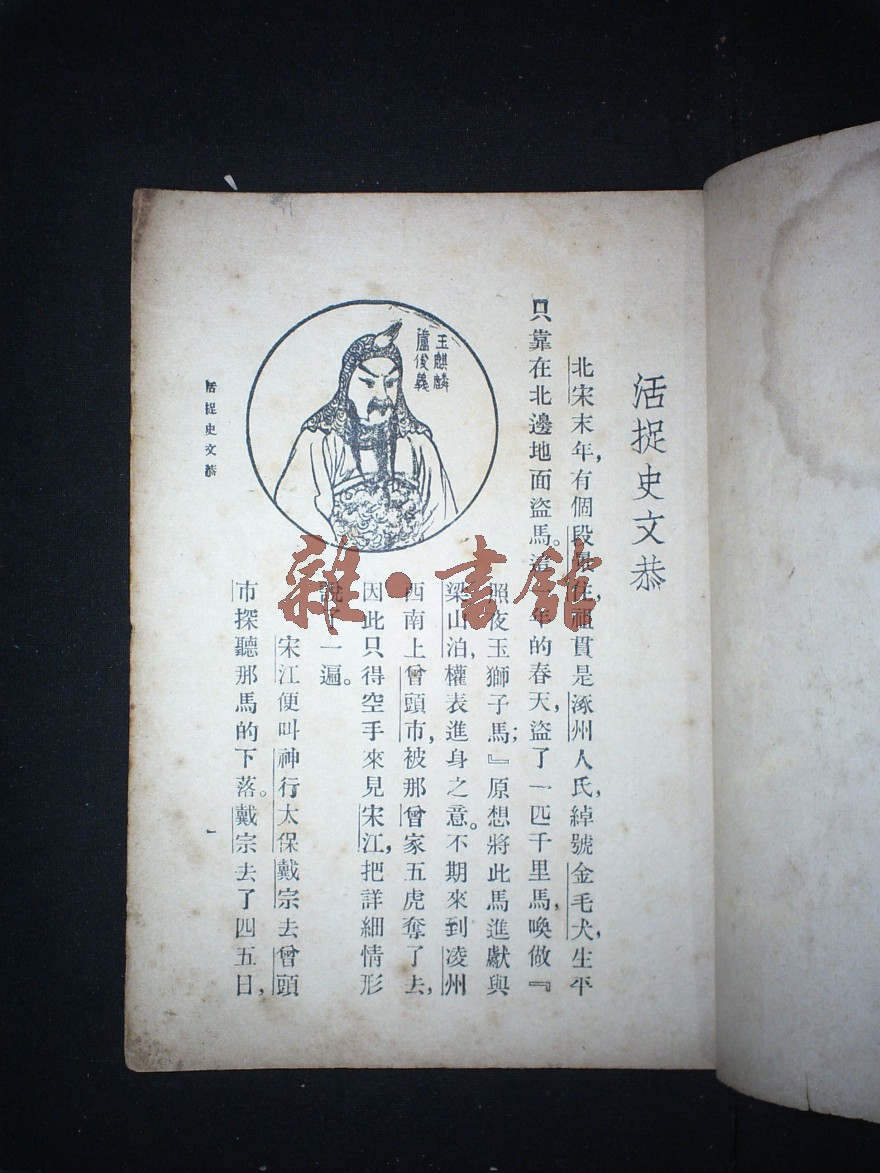 活捉史文恭
北宋末年，有個段景住，祖貫是涿州人氏，綽號金毛犬，生平
只靠在北邊地面盜馬。這一年的春天，盜了一匹千里馬，喚做『
照夜玉獅子馬；』原想將此馬進獻與
梁山泊，權表進身之意。不期來到凌州
西南上曾頭市，被那曾家五虎奪了去，
因此只得空手來見宋江，把詳細情形
說了一遍。
宋江便叫神行太保戴宗去曾頭
市探聽那馬的下落。戴宗去了四五日，
玉麒麟
盧俊義
活捉史文恭
一
雜·書館